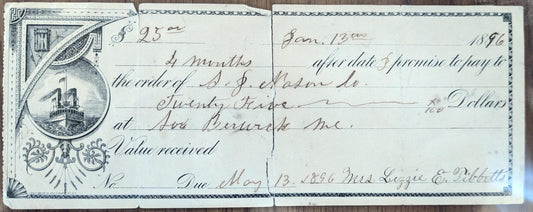 $ 25 00 Jan. 13th 1896
4 months after date I promise to pay to
the order of S. J. Nason Co.
Twenty Five Dollars
at So. Berwick Me.
Value received
No. Due May 13. 1896 Mrs Lizzie E. Tibbetts